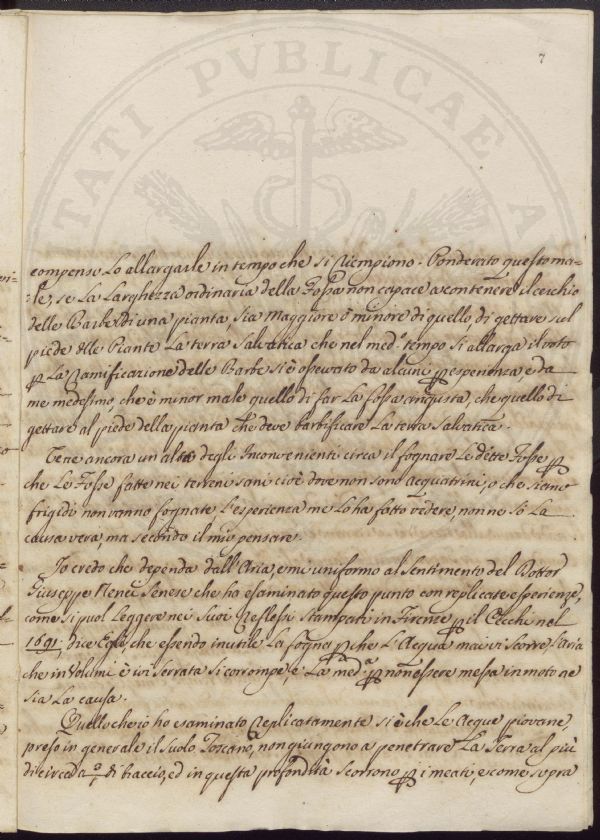 7
TATI PVBLICAE A
compenso lo allargarle in tempo che si riempiono. Ponderato questo ma=
=le, se La Larghezza ordinaria della Fossa non capace a contenere il cerchio
delle Barbe di una pianta, sia maggiore o minore di quello, di gettare sul
piede delle Piante La terra Salvatica che nel med. tempo si allarga il voto
p La Ramificazione delle Barbe si è osservato da alcuni p esperienza, e da
me medesimo, che è minor male quello di far La fossa angusta, che quello di
gettare al piede della pianta che deve barbificare La terra salvatica.
Vene ancora un altro degli Inconvenienti circa il fognare Le dette Fosse p
che Le Fosse fatte nei terreni sani cioè dove non sono acquatrini, o che siano
frigidi non vanno fognate L'esperienza me Lo ha fatto vedere, non ne sò La
causa vera, ma secondo il mio pensare.
Io credo che dependa dall'Aria, e mi uniformo al Sentimento del Dottor
Giuseppe Nenci Senese che ha esaminato questo punto con replicate esperienze,
come si puol Leggere nei Suoi Reflessi Stampati in Firenze p il Cecchi nel
1691; dice Egli, che essendo inutile La fogna p che L'Acqua mai vi scorre l'aria
che in Volumi è ivi serrata si corrompe, e La med.a p non essere messa in moto ne
sia La causa.
Quello che io ho esaminato Replicatamente si è che Le Acque piovane,
preso in generale il suolo Toscano, non giungono a penetrare La Terra al più
di circa di braccio, ed in questa profondità scorrono p i meati, e come sopra